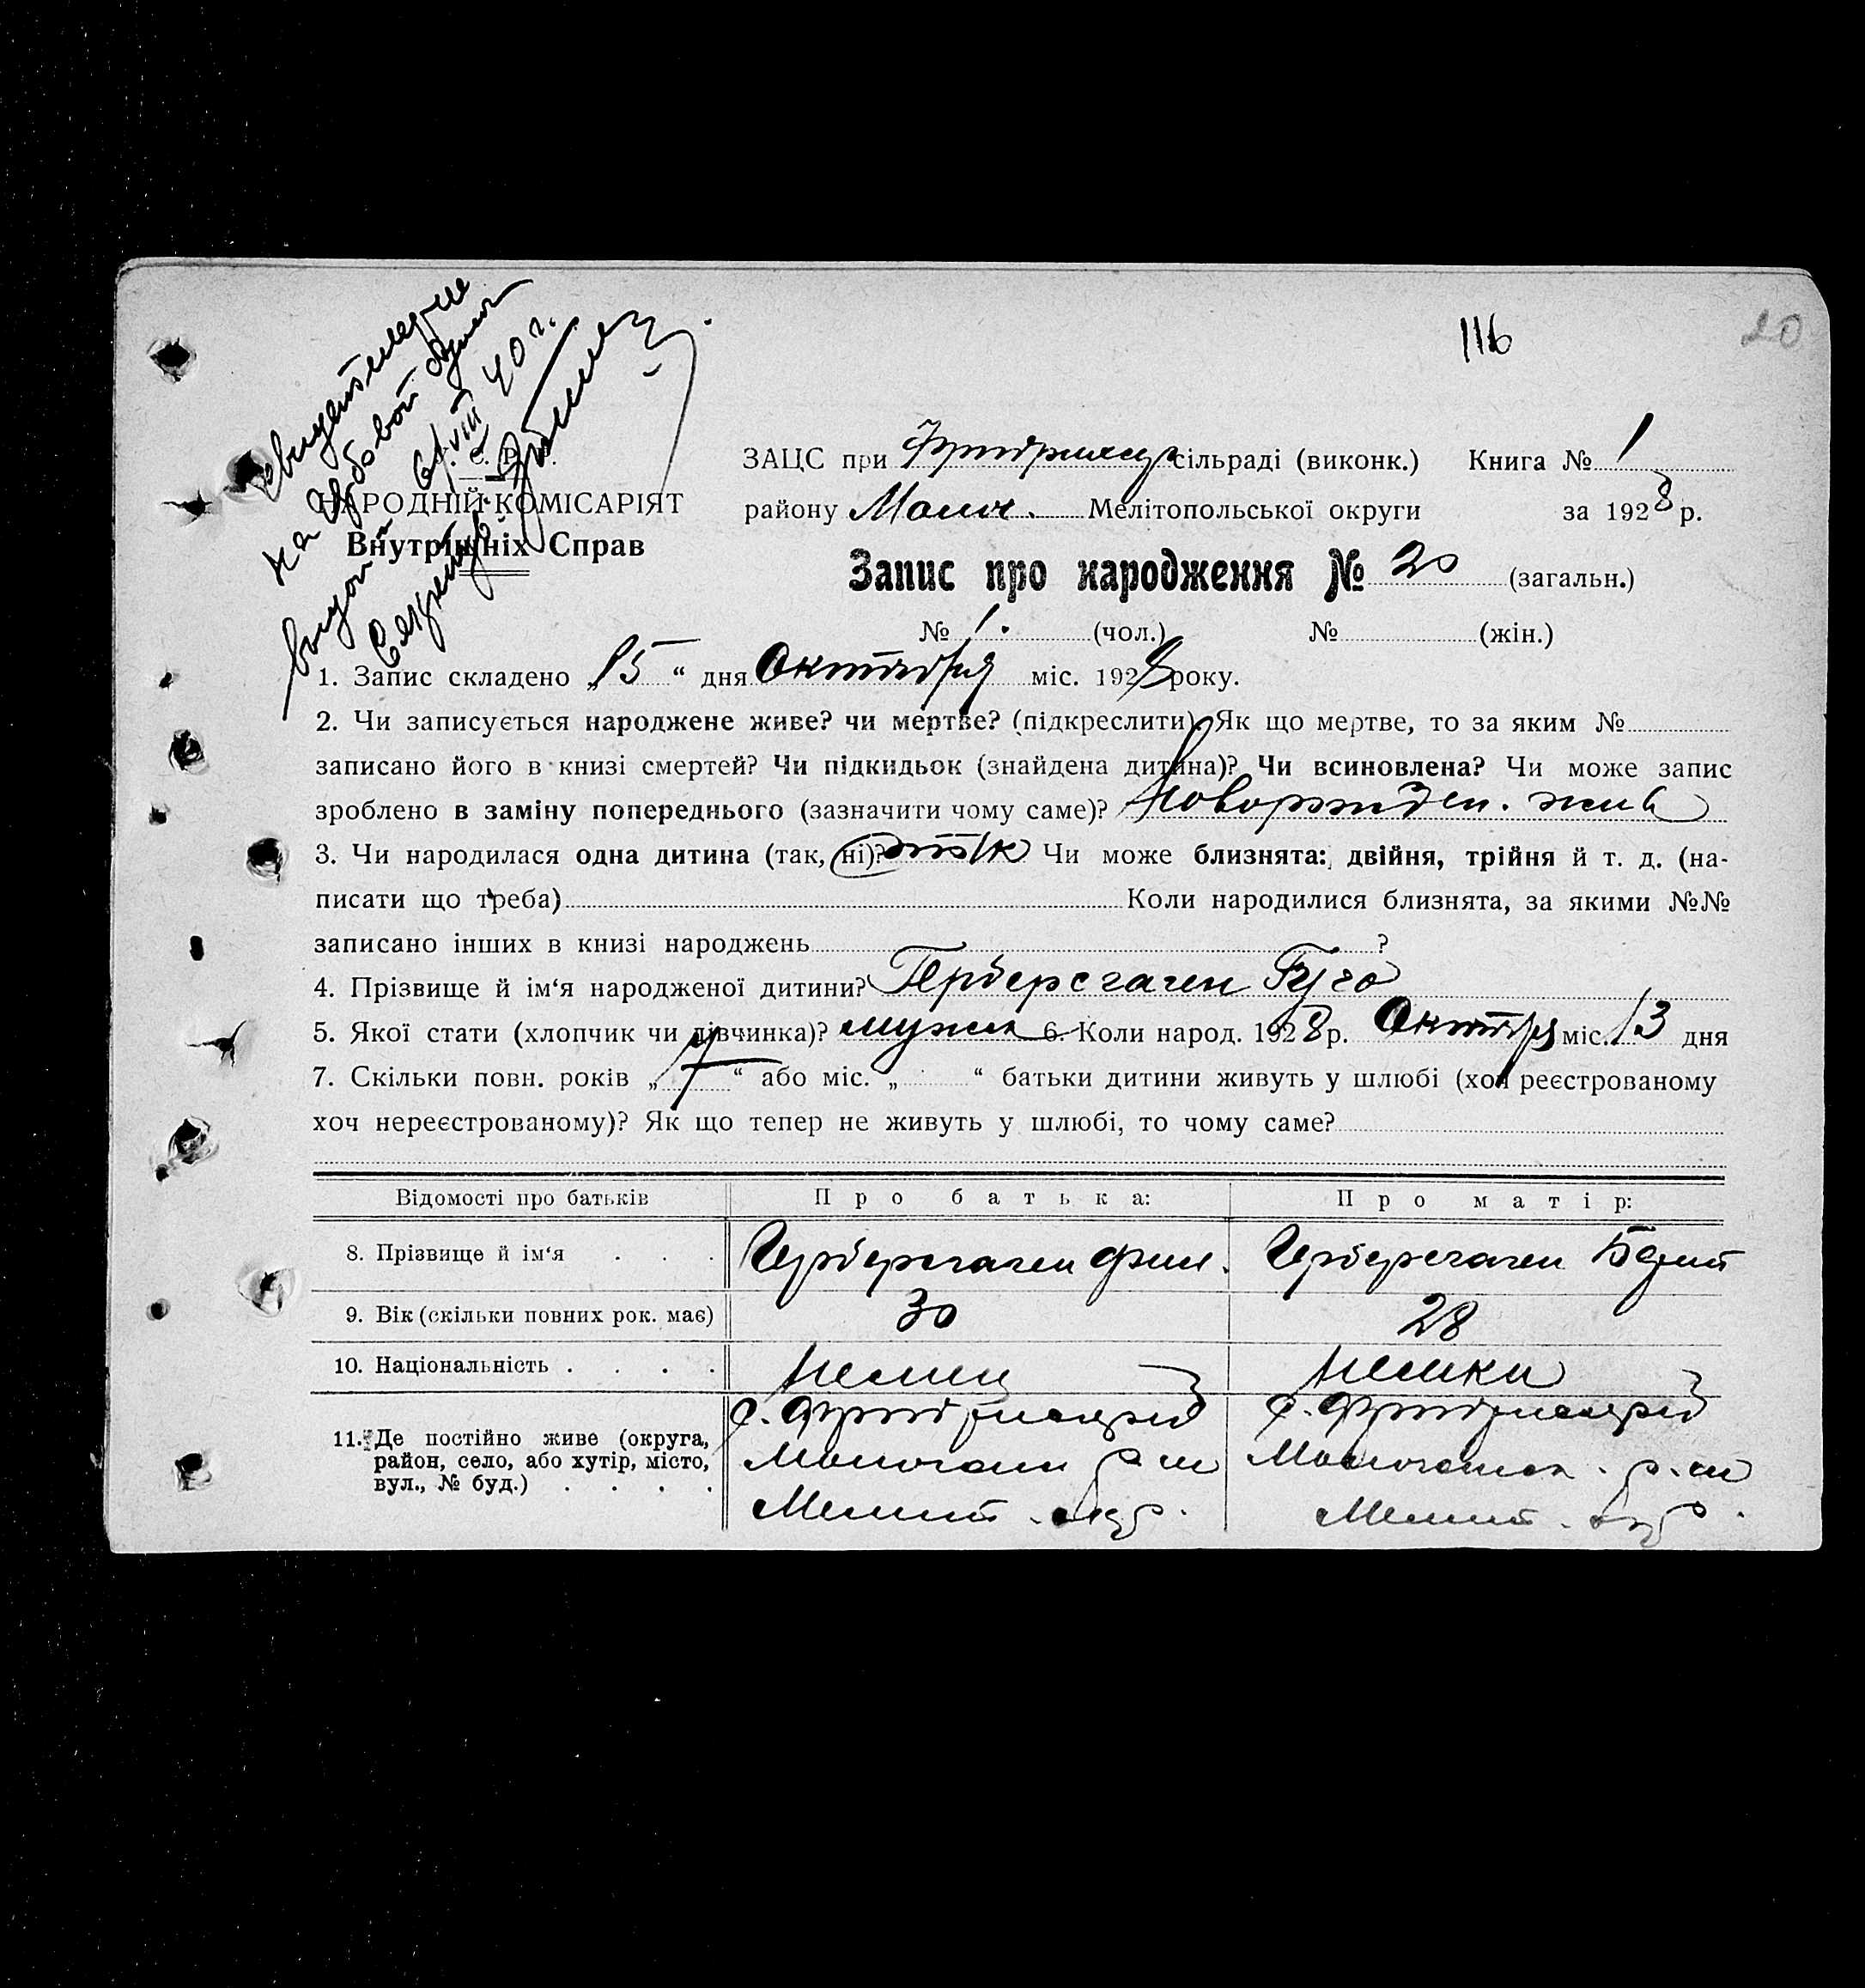 116
20
свидетельство
на гербовой бумаге
выдон 6/VIII 40 г.
Секретарь
НАРОДНІЙ КОМІСАРІЯТ
Внутрішніх Справ
ЗАЦС при сільраді (виконк.) Книга № 1
району Молоч. Мелітопольської округи за 1928 р.
Запис про народження № 20 (загальн.)
№ 1. (чол.) № (жін.)
1. Запис складено „15“ дня Октября міс. 1928 року.
2. Чи записується народжене живе? чи мертве? (підкреслити). Як що мертве, то за яким №
записано його в книзі смертей? Чи підкидьок (знайдена дитина)? Чи всиновлена? Чи може запис
зроблено в заміну попереднього (зазначити чому саме)? Новорожден. жив
3. Чи народилася одна дитина (так, ні)? так Чи може близнята: двійня, трійня й т. д. (на-
писати що треба) Коли народилися близнята, за якими №№
записано інших в книзі народжень ?
4. Прізвище й ім‘я народженої дитини? Герберсгаген Гуго
5. Якої стати (хлопчик чи дівчинка)? мужск 6. Коли народ. 1928 р. Октября міс. 13 дня
7. Скільки повн. років „7“ або міс. „ “ батьки дитини живуть у шлюбі (хоч реєстрованому
хоч нереєстрованому)? Як що тепер не живуть у шлюбі, то чому саме?
Відомості про батьків Про батька: Про матір:
8. Прізвище й ім‘я . . . Герберсгаген Герберсгаген
9. Вік (скільки повних рок. має) 30 28
10. Національність . . . . Немец Немка
11. Де постійно живе (округа, с. Фридрихсфельд с. Фридрихсфельд
район, село, або хутір, місто, Молочанск р-на Молочанск. р-на
вул., № буд.) . . . . Мелит. окр. Мелит. окр.